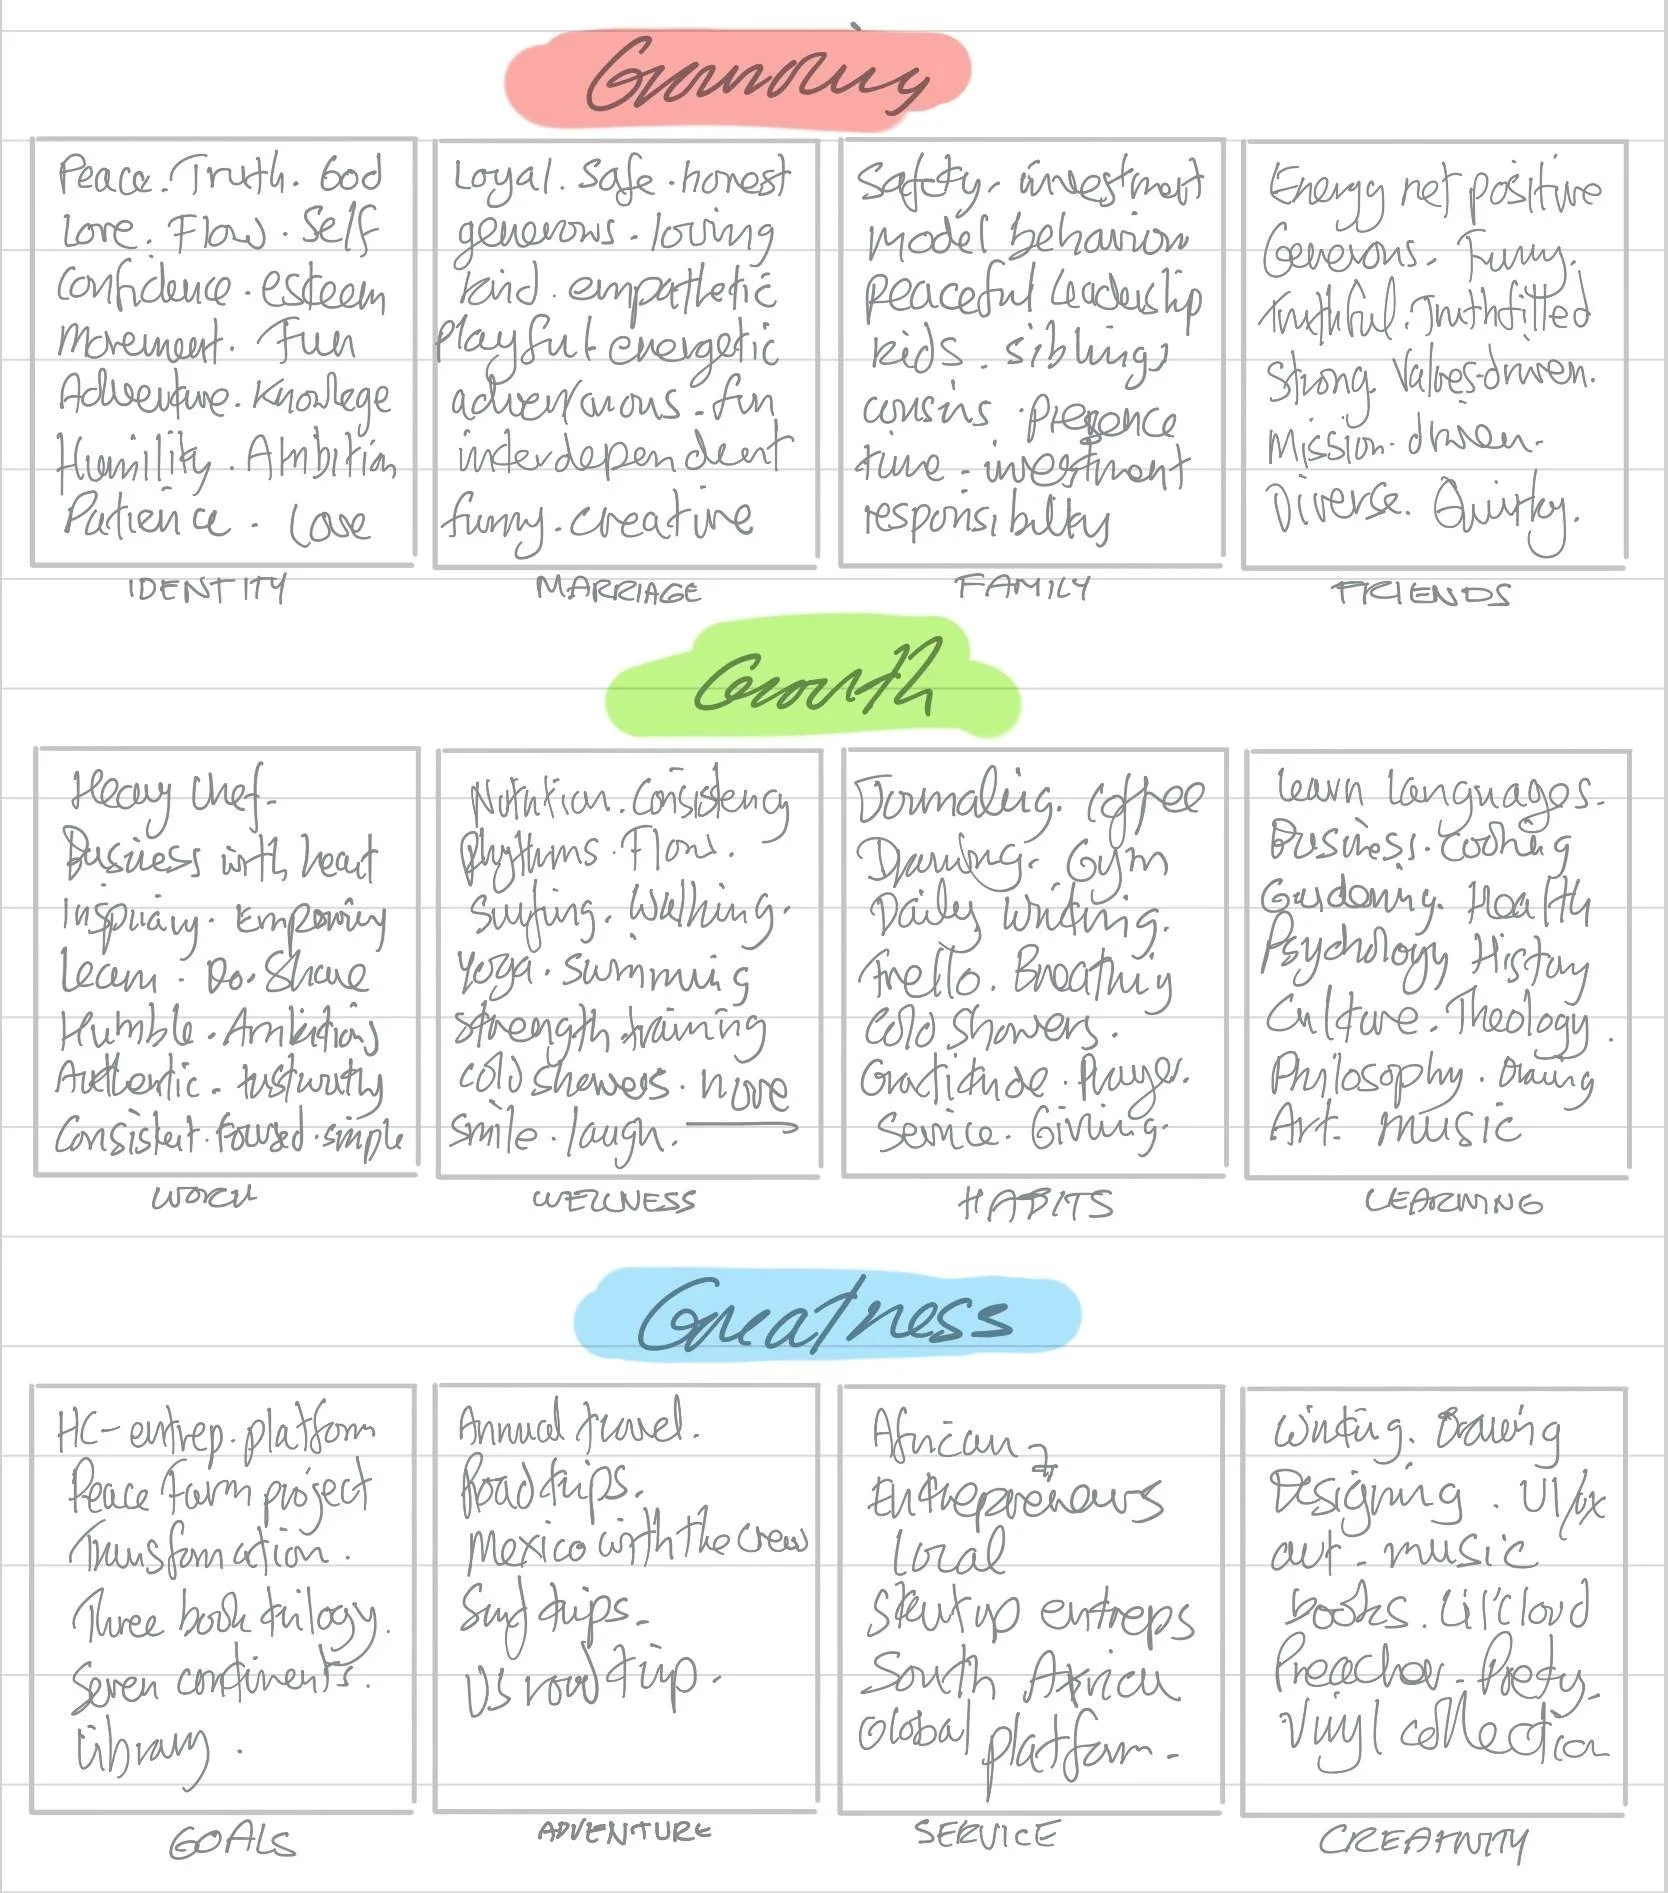 Grounding
Peace. Truth. God
Love. Flow. Self
confidence. esteem
Movement. Fun
Adventure. Knowlege
Humility. Ambition
Patience. Lose
IDENTITY
Loyal. Safe. honest
generous. loving
kind. empathetic
playful energetic
adventurous. fun
interdependent
funny. creative
MARRIAGE
Safety. investment
model behavior
peaceful leadership
kids. siblings
cousins. Presence
time - investment
responsibility
FAMILY
Energy net positive
Generous. Funny.
Truthful. Truthfilled
Strong. Values-driven.
Mission-driven.
Diverse. Quirky.
FRIENDS
Growth
Heavy Chef.
Business with heart
Inspiring. Empowering
Learn. Do. Share
Humble. Ambitious
Authentic. trustworthy
Consistent. focused. simple
WORK
Nutrition. Consistency
Rhythms. Flow.
Surfing. Walking.
Yoga. swimming
strength training
cold showers. move
smile. laugh.
WELLNESS
Journaling. Coffee
Drawing. Gym
Daily Writing.
Trello. Breathing
Cold Showers.
Gratitude. Prayer.
Service. Giving.
HABITS
Learn languages.
Business. Cooking
Gardening. Health
Psychology History
Culture. Theology.
Philosophy. Drawing
Art. music
LEARNING
Greatness
HC-entrep. platform
Peace Farm project
Transformation.
Three book trilogy.
Seven continents.
Library.
GOALS
Annual travel.
Road trips.
Mexico with the crew
Surf trips.
US road trip.
ADVENTURE
African
Entrepreneurs
Local
Startup entreps
South Africa
Global platform.
SERVICE
Writing. Drawing
Designing. UI/UX
art. music
books. Lil'cloud
Preacher. Poetry.
Vinyl collection
CREATIVITY